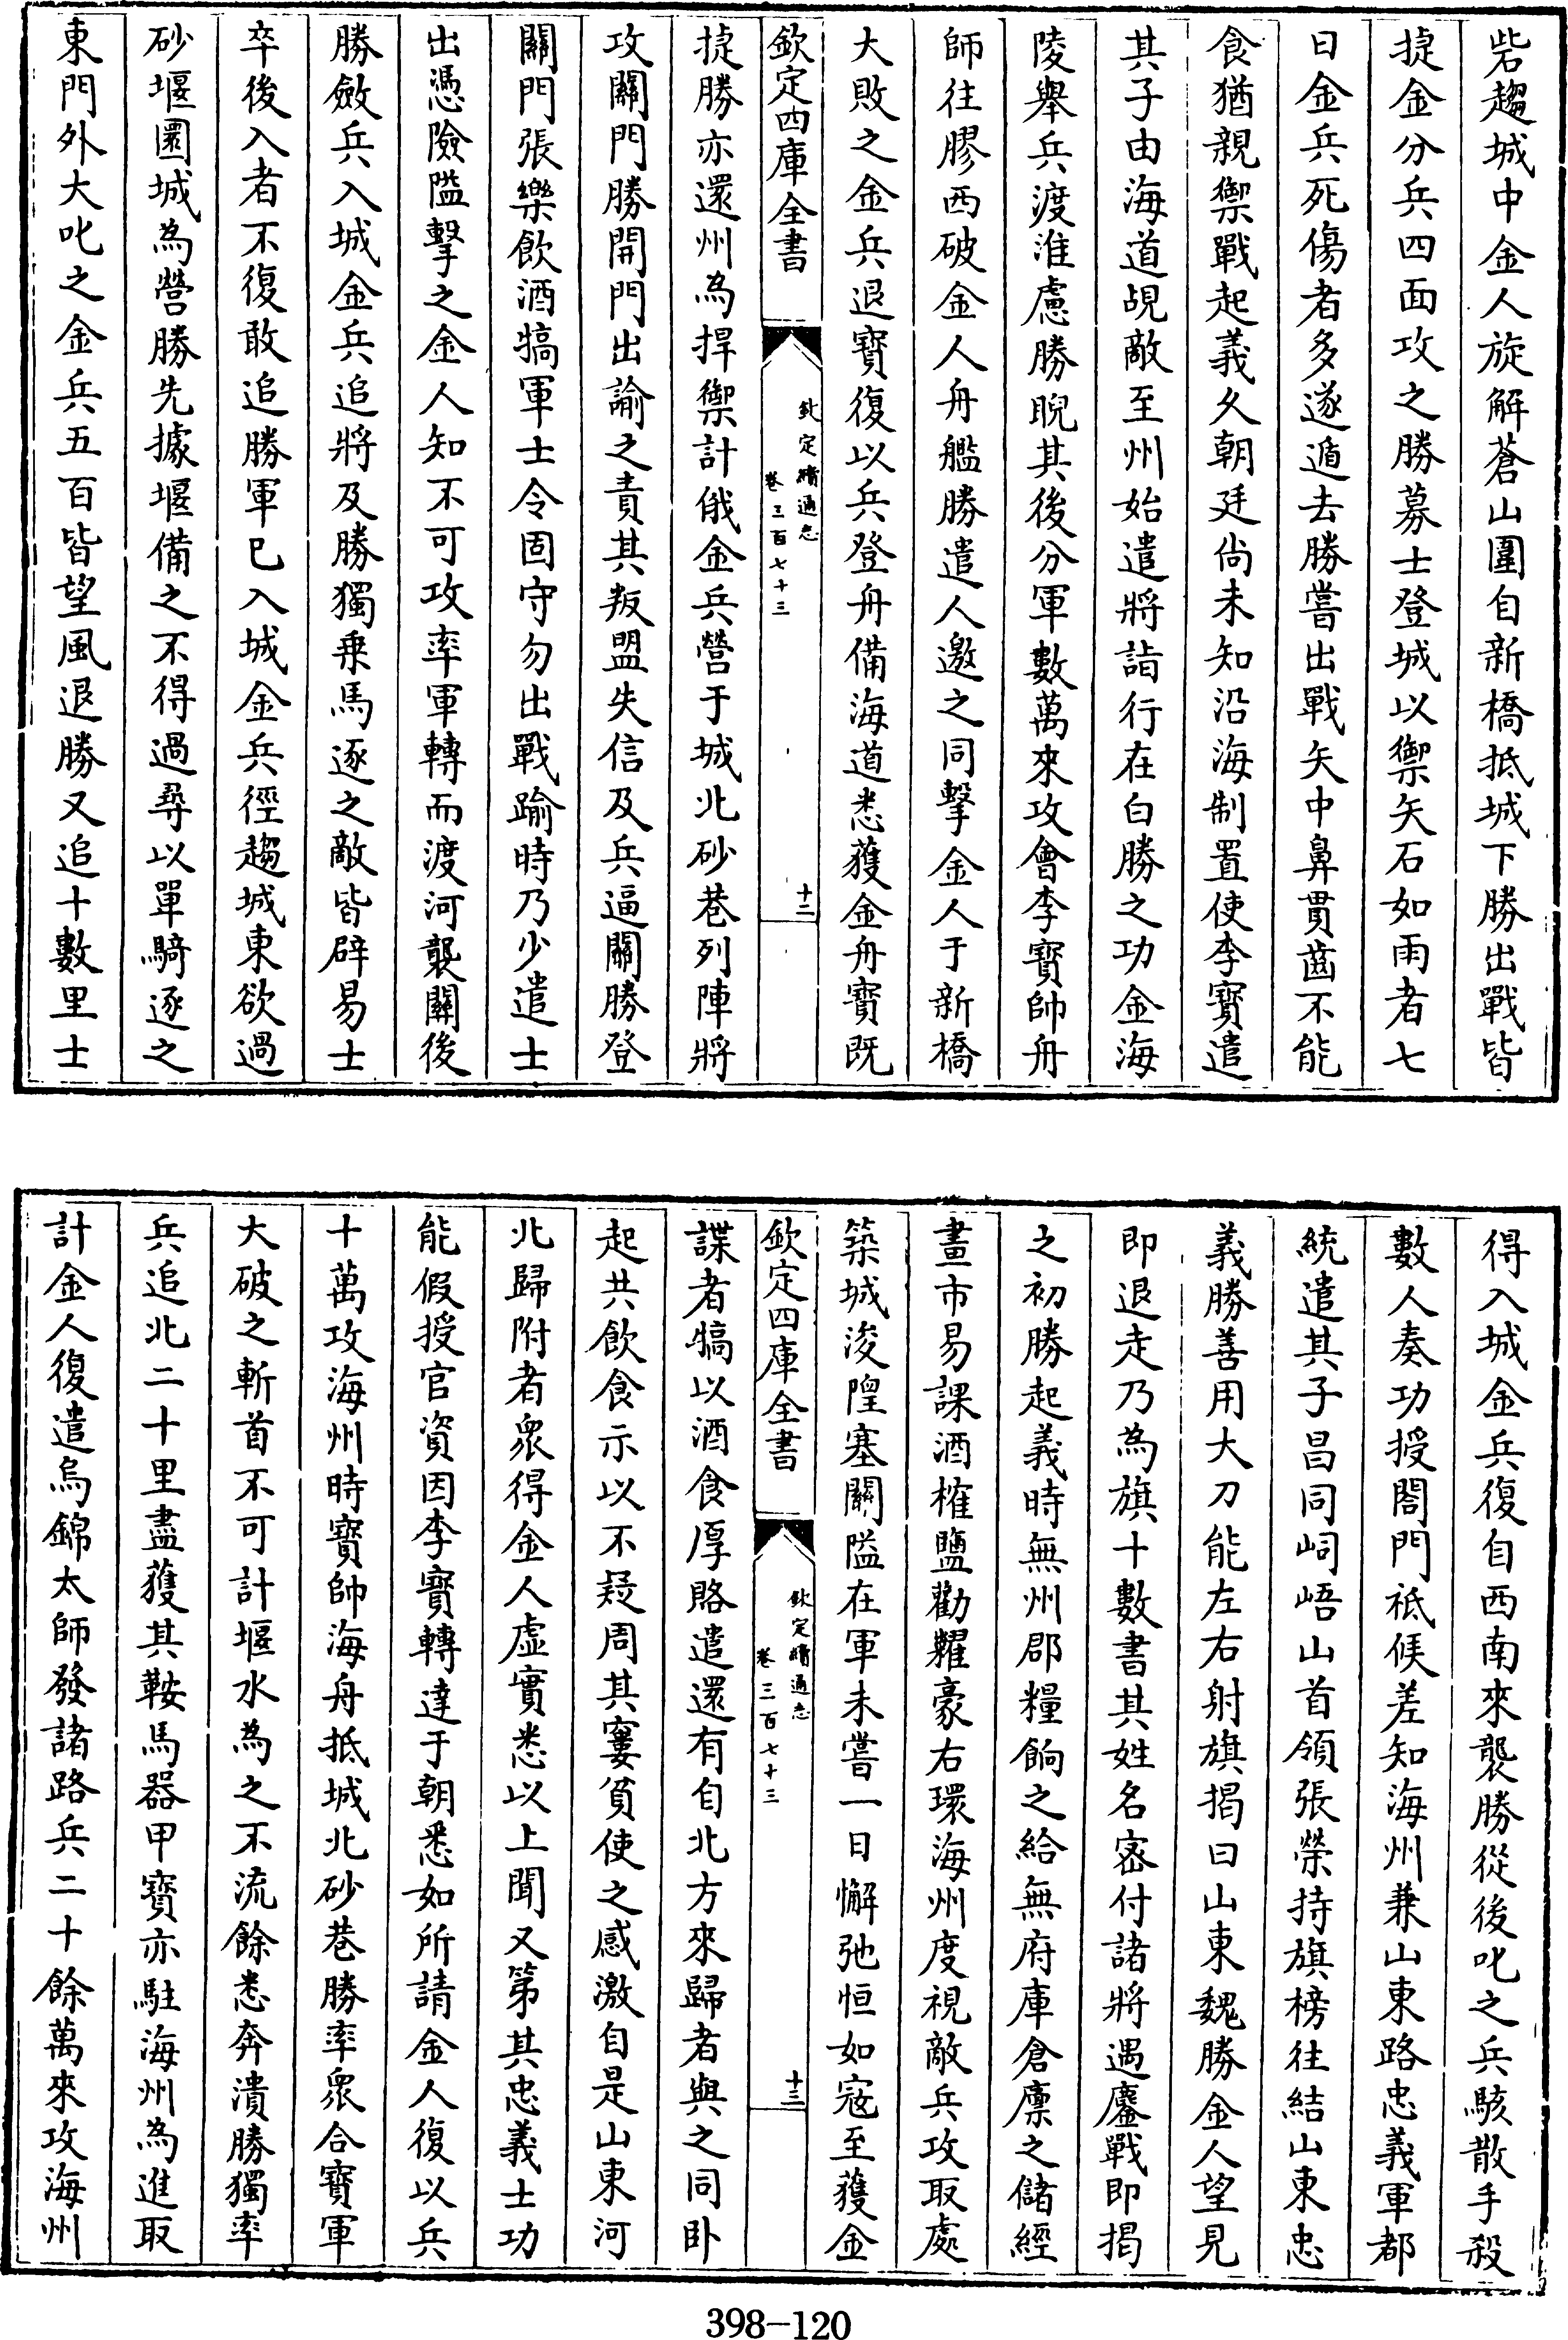 砦趨城中金人旋解蒼山圍自新橋抵城下勝出戰皆
捷金分兵四面攻之勝募士登城以禦矢石如雨者七
日金兵死傷者多遂遁去勝嘗出戰矢中鼻貫齒不能
食猶親禦戰起義久朝廷尚未知沿海制置使李寳遣
其子由海道覘敵至州始遣將詣行在白勝之功金海
陵舉兵渡淮慮勝睨其後分軍數萬來攻會李寳帥舟
師往膠西破金人舟艦勝遣人邀之同擊金人于新橋
大敗之金兵退寳復以兵登舟備海道悉獲金舟寳既
欽定四庫全書
欽定續通志
卷三百七十三
十二
捷勝亦還州為捍禦計俄金兵營于城北砂巷列陣將
攻關門勝開門出諭之責其叛盟失信及兵逼關勝登
關門張樂飲酒犒軍士令固守勿出戰踰時乃少遣士
出憑險隘擊之金人知不可攻率軍轉而渡河襲關後
勝斂兵入城金兵追將及勝獨乗馬逐之敵皆辟易士
卒後入者不復敢追勝軍已入城金兵徑趨城東欲過
砂堰圍城為營勝先據堰備之不得過尋以單騎逐之
東門外大叱之金兵五百皆望風退勝又追十數里士
得入城金兵復自西南來襲勝從後叱之兵駭散手殺
數人奏功授閤門祗候差知海州兼山東路忠義軍都
統遣其子昌同峒峿山首領張榮持旗榜往結山東忠
義勝善用大刀能左右射旗揭曰山東魏勝金人望見
即退走乃為旗十數書其姓名宻付諸將遇鏖戰即揭
之初勝起義時無州郡糧餉之給無府庫倉廪之儲經
畫市易課酒榷鹽勸糶豪右環海州度視敵兵攻取處
築城浚隍塞關隘在軍未嘗一日懈弛恒如寇至獲金
欽定四庫全書
欽定續通志
卷三百七十三
十三
諜者犒以酒食厚賂遣還有自北方來歸者與之同卧
起共飲食示以不疑周其窶貧使之感激自是山東河
北歸附者衆得金人虛實悉以上聞又第其忠義士功
能假授官資因李寳轉達于朝悉如所請金人復以兵
十萬攻海州時寳帥海舟抵城北砂巷勝率衆合寳軍
大破之斬首不可計堰水為之不流餘悉奔潰勝獨率
兵追北二十里盡獲其鞍馬器甲寳亦駐海州為進取
計金人復遣烏錦太師發諸路兵二十餘萬來攻海州
398-120